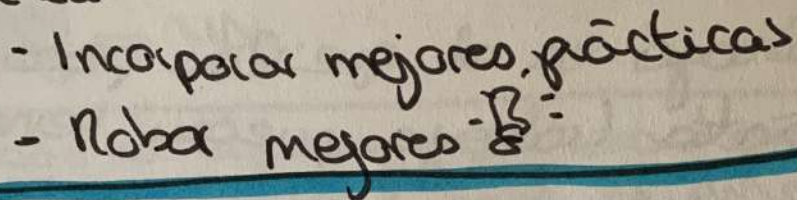 - Incorporar mejores prácticas
- Robar mejores